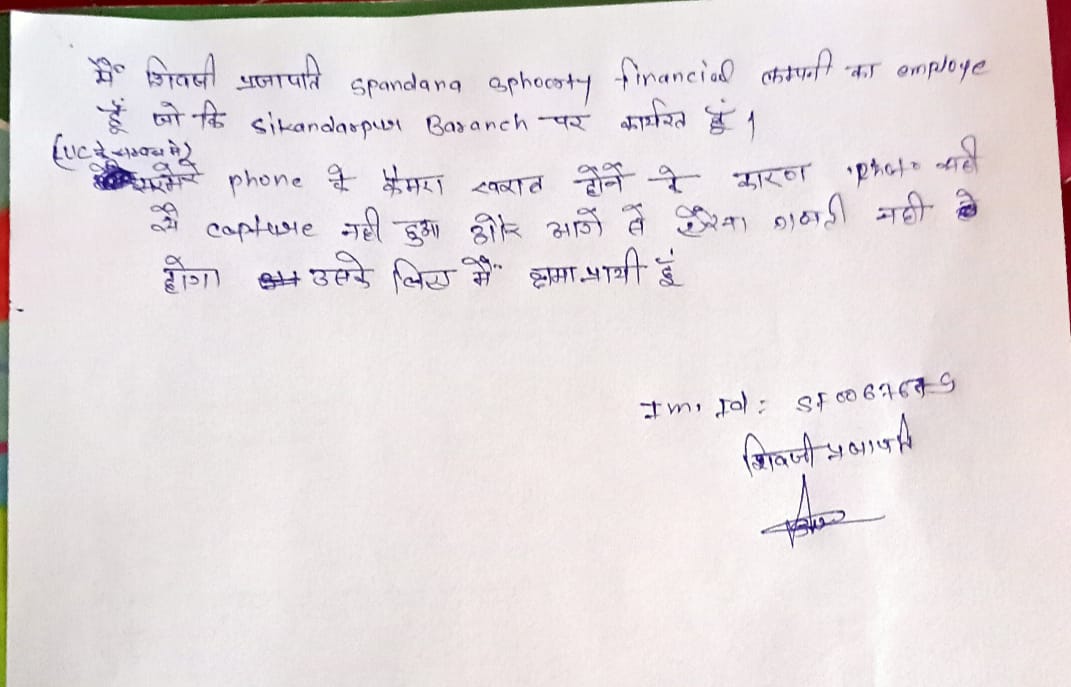 मैं शिवजी प्रजापति spandana sphoorty financial कम्पनी का employe
हूँ जो कि sikandarpur Baranch पर कार्यरत हूं।
(UC के सम्बन्ध मे)
मेरे phone के कैमरा खराब होने के कारण photo सही
से capture नही हुआ और आगे से ऐसा गलती नही
होगा उसके लिए मैं क्षमा प्रार्थी हूं
Em. Id :
शिवजी प्रजापति